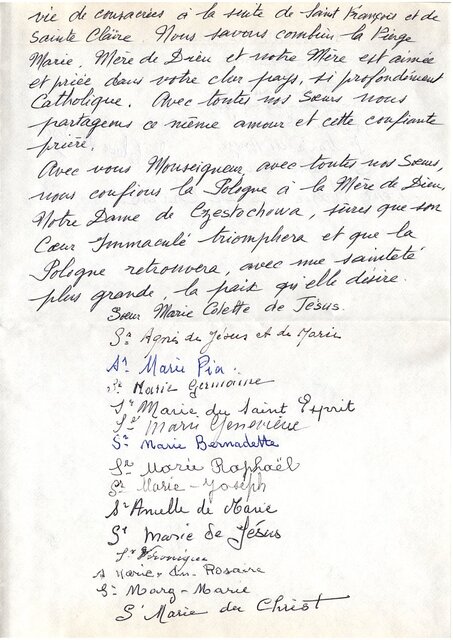 vie de consacrées à la suite de Saint François et de
Sainte Claire. Nous savons combien la Vierge
Marie, Mère de Dieu et notre Mère est aimée
et priée dans votre cher pays, si profondément
Catholique. Avec toutes nos Sœurs nous
partageons ce même amour et cette confiante
prière.
Avec vous Monseigneur, avec toutes nos Sœurs,
nous confions la Pologne à la Mère de Dieu,
Notre Dame de Czestochowa, sûres que son
Cœur Immaculé triomphera et que la
Pologne retrouvera, avec une sainteté
plus grande, la paix qu'elle désire.
Sœur Marie Colette de Jésus.
Sr Agnès de Jésus et de Marie
Sr Marie Pia.
Sr Marie Germaine
Sr Marie du Saint Esprit
Sr Marie Geneviève
Sr Marie Bernadette
Sr Marie Raphaël
Sr Marie-Joseph
Sr Anielle de Marie
Sr Marie de Jésus
Sr Véronique
Sr Marie-du-Rosaire
Sr Marg-Marie
Sr Marie du Christ